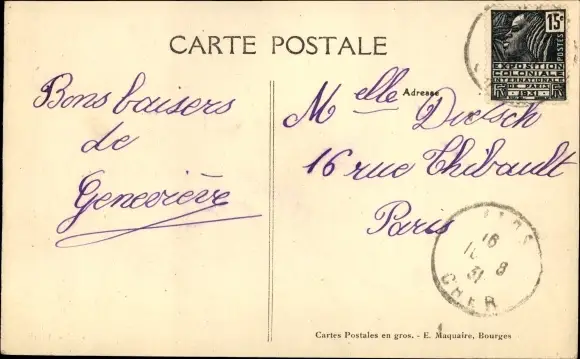 CARTE POSTALE
Bons baisers
de
Geneviève
Adresse
Melle Dietsch
16 rue Thibault
Paris
15c
POSTES
EXPOSITION
COLONIALE
INTERNATIONALE
DE PARIS
1931
RF
16
8
31
CHER
Cartes Postales en gros. - E. Maquaire, Bourges